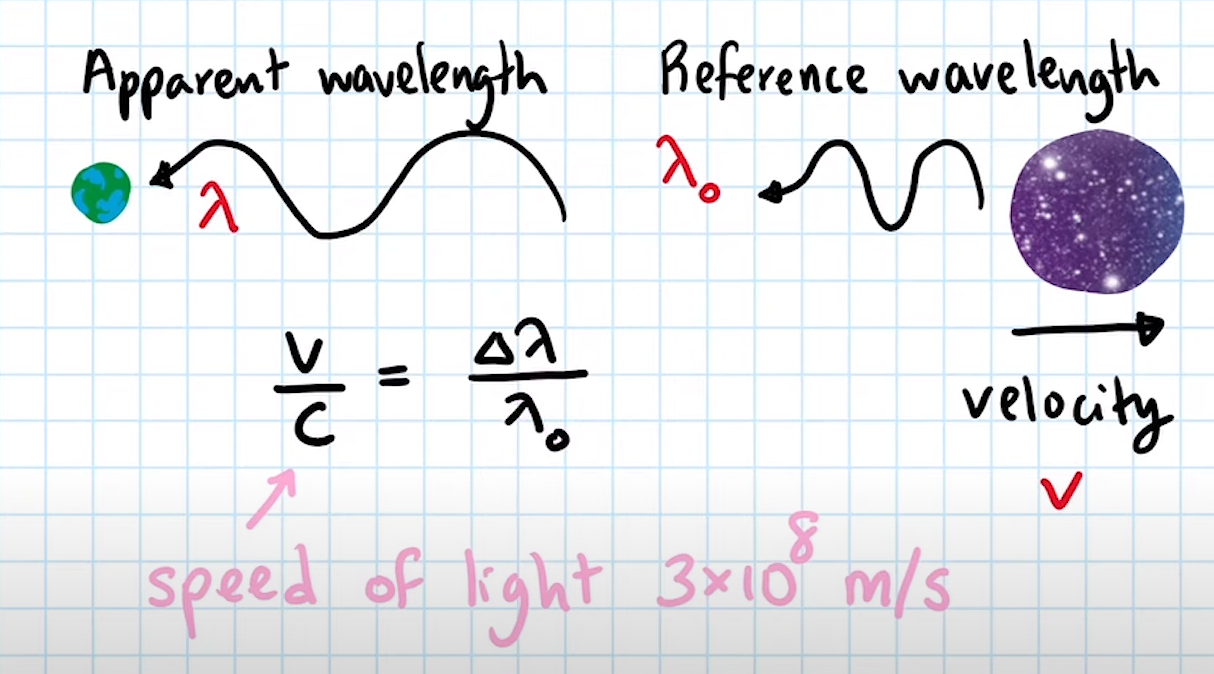 Apparent wavelength
Reference wavelength
λ
λ₀
V/C = Δλ/λ₀
velocity
v
speed of light 3×10⁸ m/s